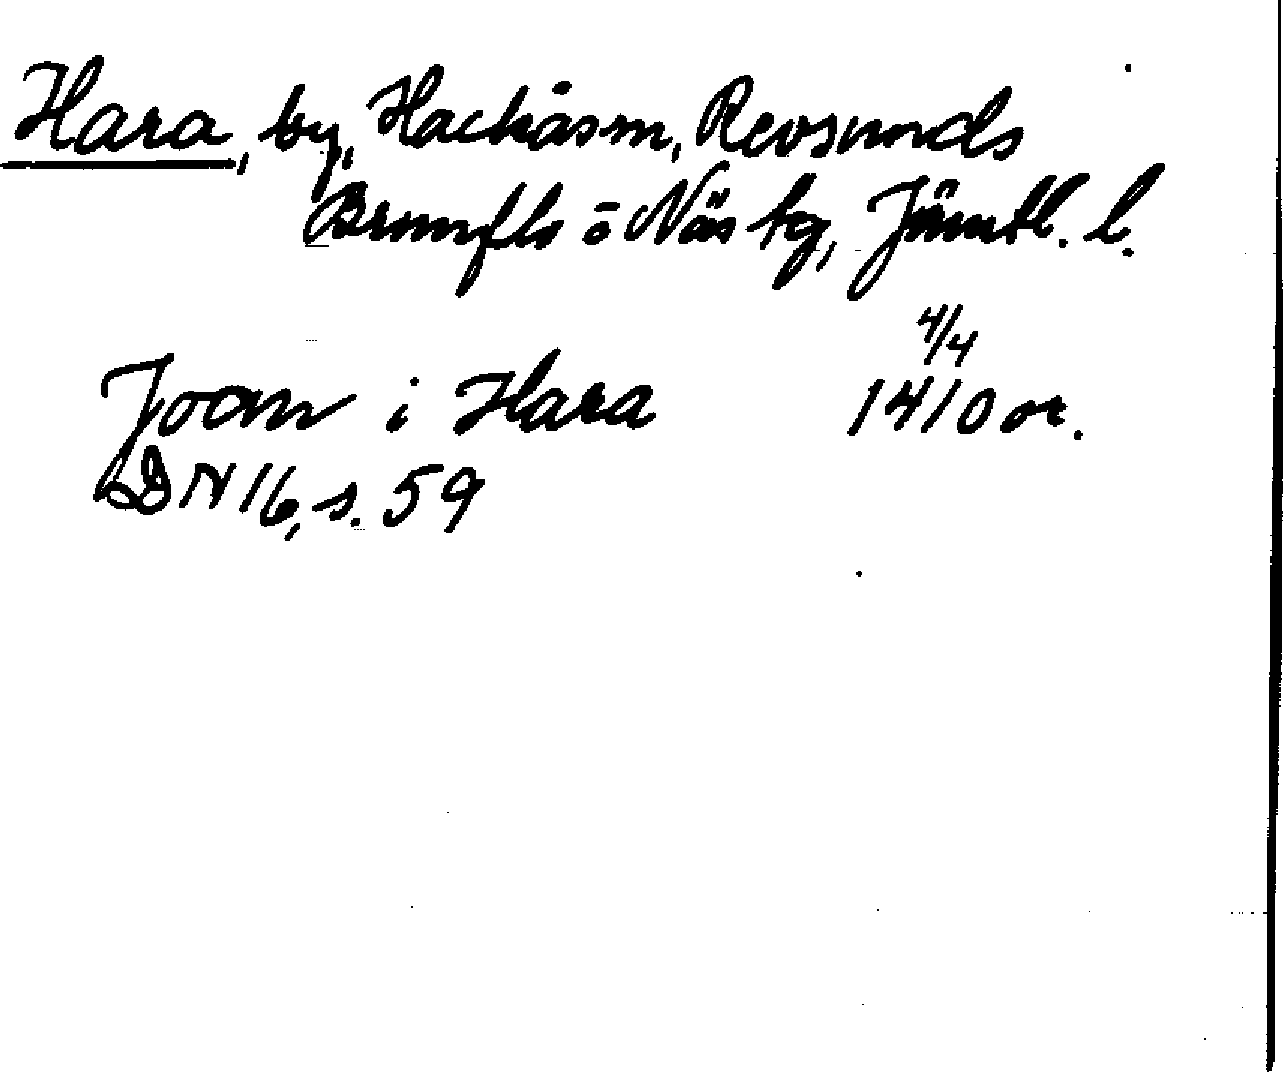 Hara, by, Hackås sn, Revsunds
Brunflo o Näs tg, Jämtl. l.
4/4
Joan i Hara 1410 or.
DN 16, s. 59